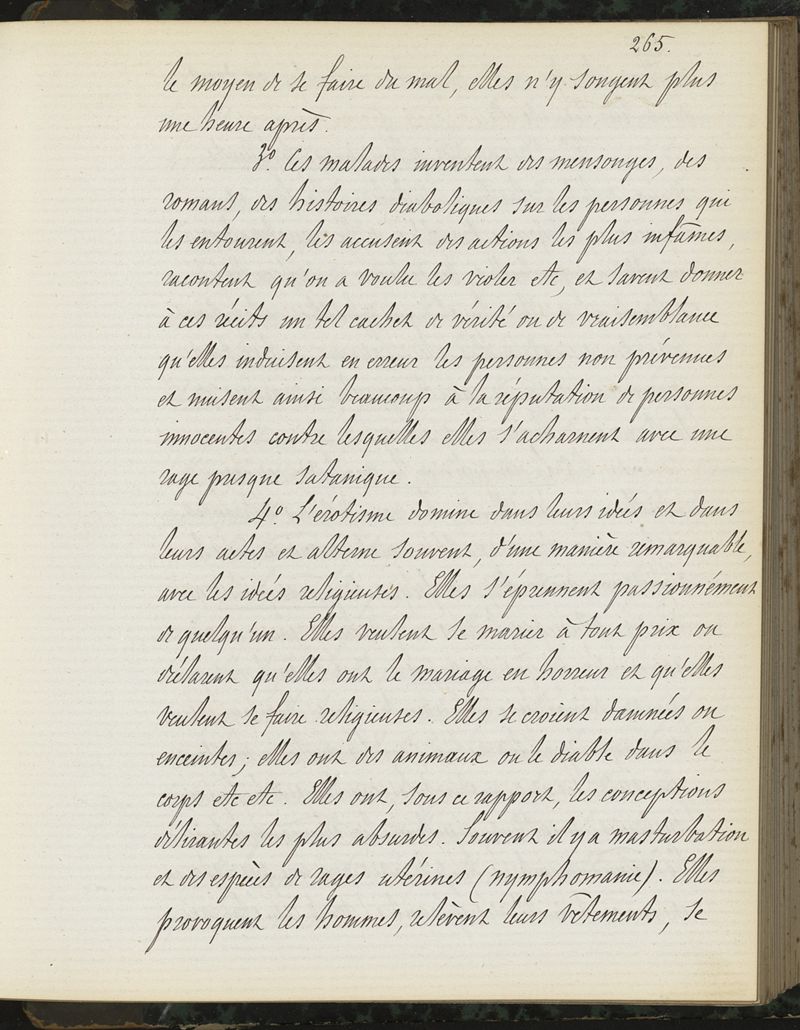 265.
le moyen de se faire du mal, elles n'y songent plus
une heure après.
3º. Ces malades inventent des mensonges, des
romans, des histoires diaboliques sur les personnes qui
les entourent, les accusent des actions les plus infâmes,
racontent qu'on a voulu les violer etc, et savent donner
à ces récits un tel cachet de vérité ou de vraisemblance
qu'elles induisent en erreur les personnes non prévenues
et nuisent ainsi beaucoup à la réputation de personnes
innocentes contre lesquelles elles s'acharnent avec une
rage presque satanique.
4º. L'érotisme domine dans leurs idées et dans
leurs actes et alterne souvent, d'une manière remarquable,
avec les idées religieuses. Elles s'éprennent passionnément
de quelqu'un. Elles veulent se marier à tout prix ou
déclarent qu'elles ont le mariage en horreur et qu'elles
veulent se faire religieuses. Elles se croient damnées ou
enceintes; elles ont des animaux ou le diable dans le
corps etc etc. Elles ont, sous ce rapport, les conceptions
délirantes les plus absurdes. Souvent il y a masturbation
et des espèces de rages utérines (nymphomanie). Elles
provoquent les hommes, relèvent leurs vêtements, se